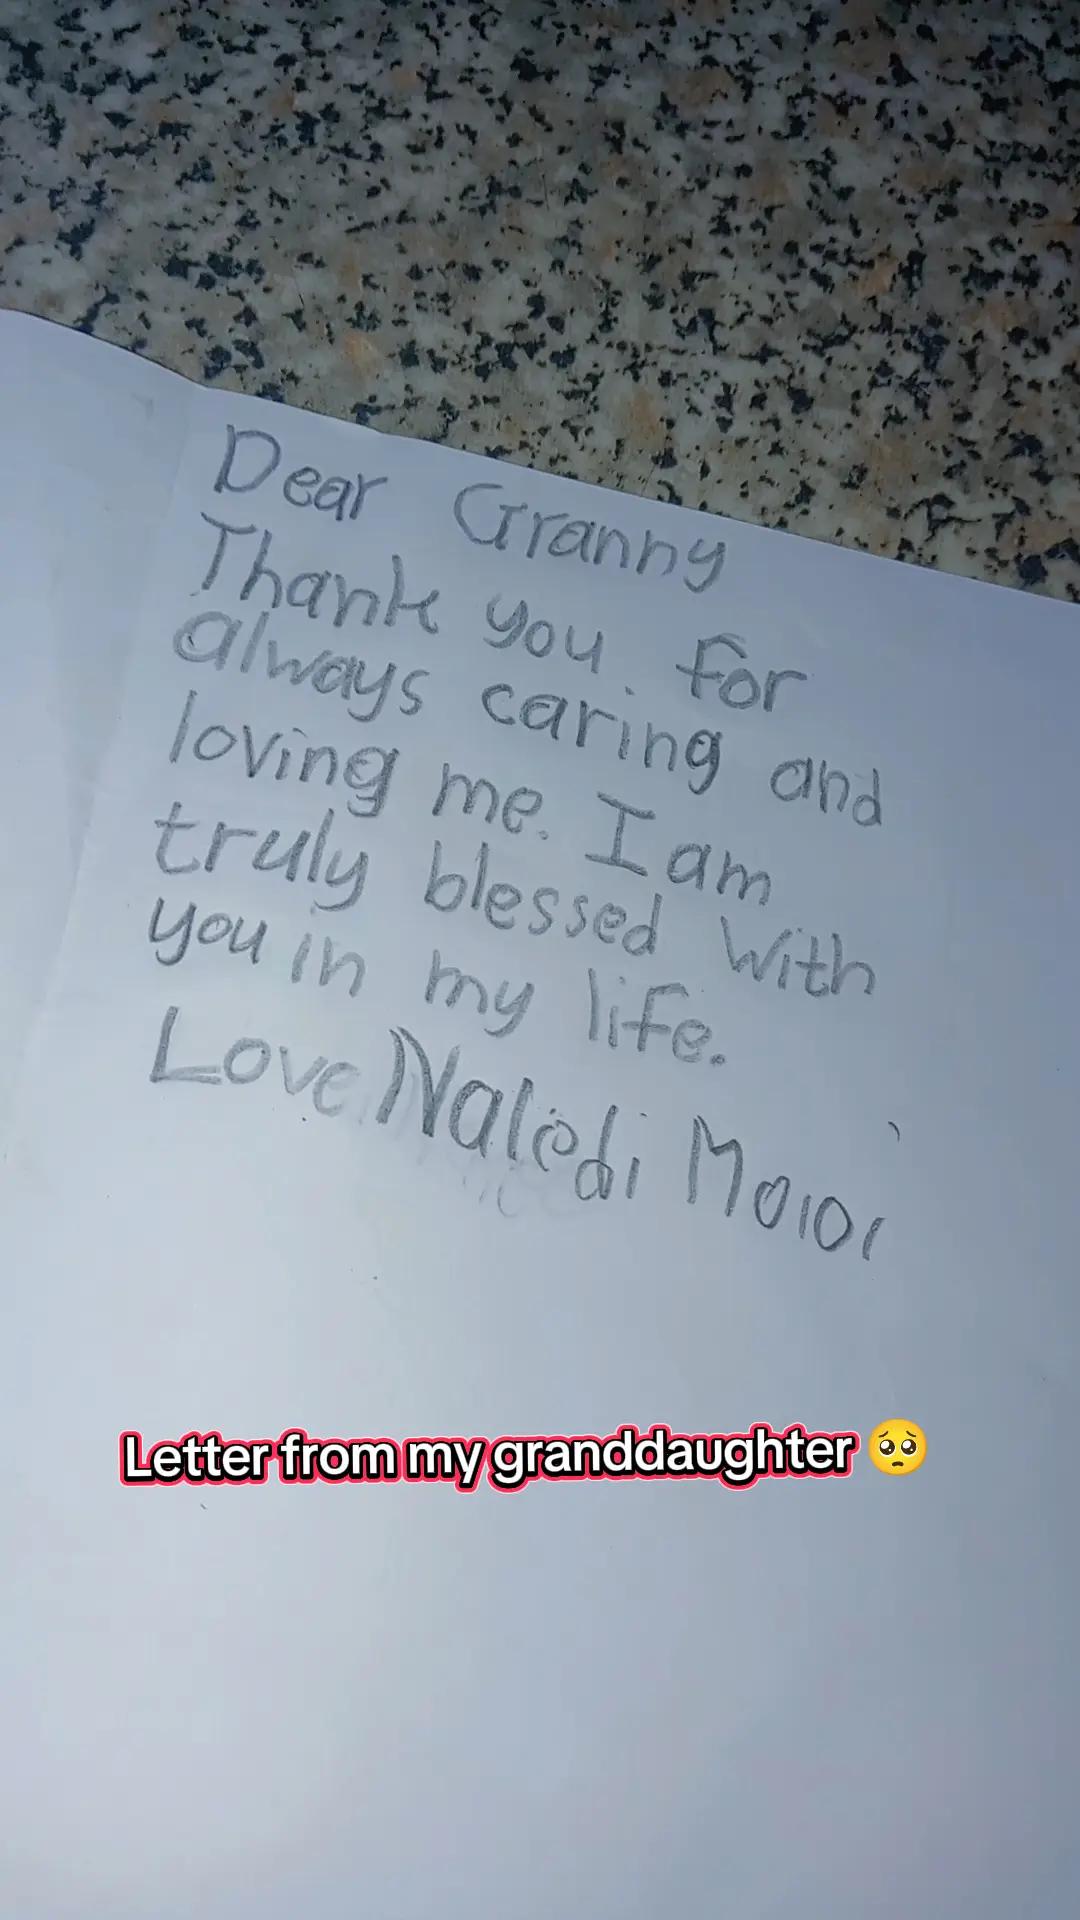 Dear Granny
Thank you for
always caring and
loving me. I am
truly blessed with
you in my life.
Love Naledi Moloi
Letter from my granddaughter 🥺